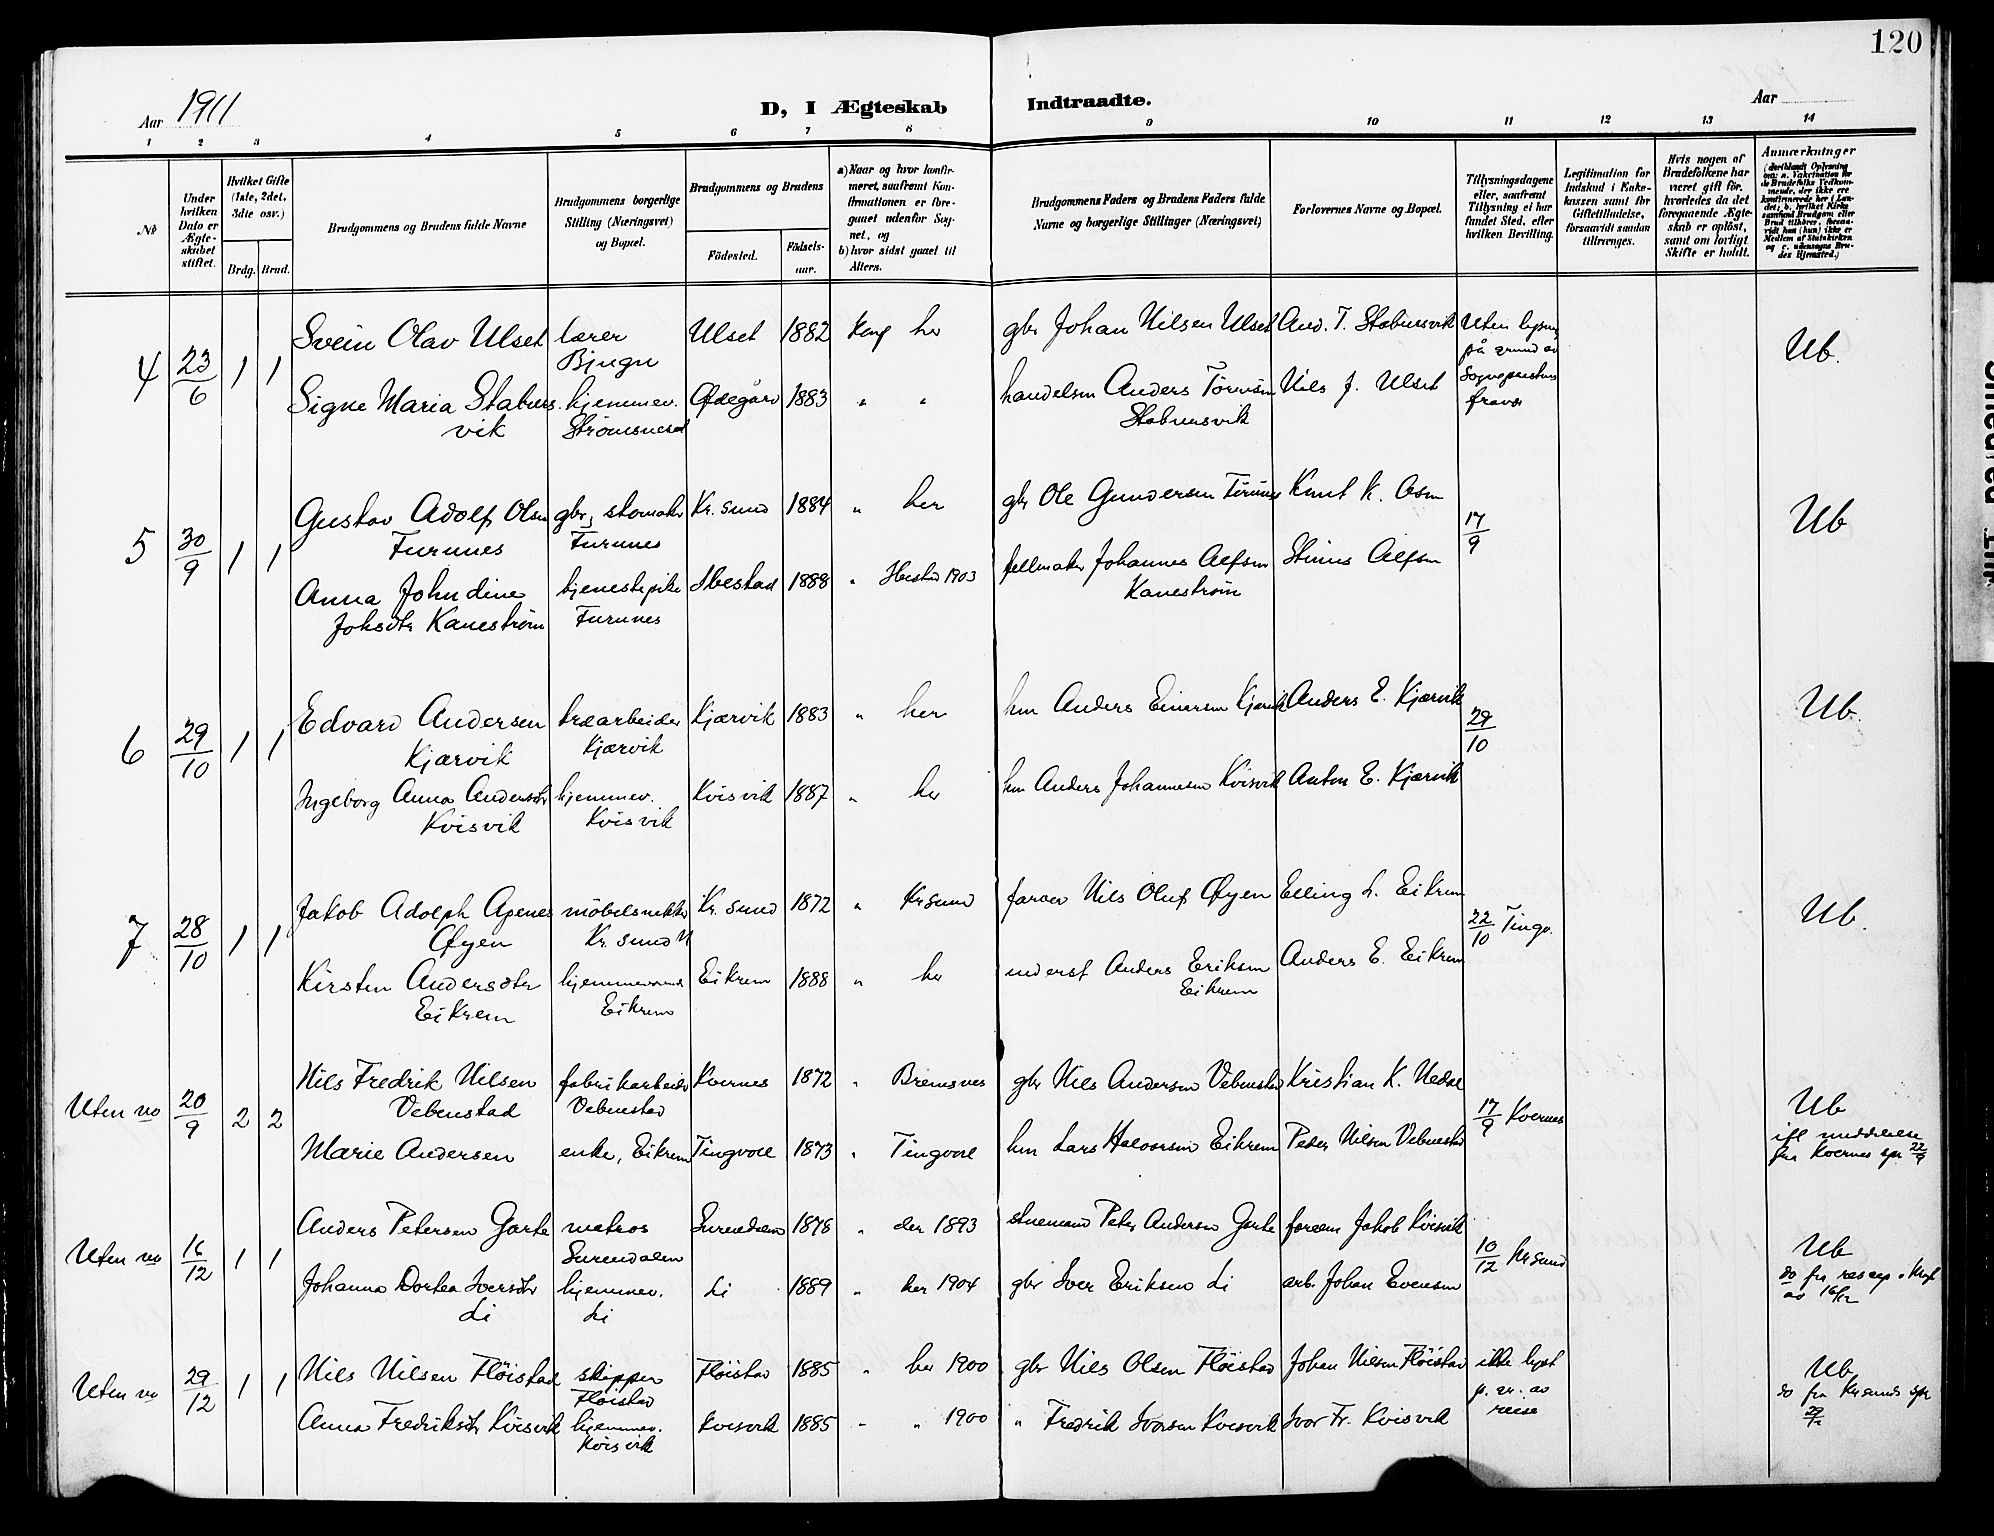 120
Aar 1911
D, I Ægteskab Indtraadte.
Aar
1 2 3 4 5 6 7 8 9 10 11 12 13 14
No
Under hvilken Dato er Ægteskabet stiftet.
Hvilket Gifte (1ste, 2det, 3die osv.)
Brdg. Brud.
Brudgommens og Brudens fulde Navne
Brudgommens borgerlige Stilling (Næringsvei) og Bopæl.
Brudgommens og Brudens
Fødested. Fødselsaar.
a) Naar og hvor konfirmeret, saafremt Konfirmationen er foregaaet udenfor Sognet, og
b) hvor sidst gaaet til Alters.
Brudgommens Faders og Brudens Faders fulde Navne og borgerlige Stillinger (Næringsvei)
Forlovernes Navne og Bopæl.
Tillysningsdagene eller, saafremt Tillysning ei har fundet Sted, efter hvilken Bevilling.
Legitimation for Indskud i Enkekassen samt for Giftetilladelse, forsaavidt saadan tiltrænges.
Hvis nogen af Brudefolkene har været gift før, hvorledes da det foregaaende Ægteskab er opløst, samt om lovligt Skifte er holdt.
Anmærkninger
4 23/6 1 1 Svein Olav Ulset lærer Bjugn Ulset 1882 Konf her gbr Johan Nilsen Ulset And. T. Stabursvik Uten lysning på grund av Sogneprestens fravær Ub.
Signe Maria Stabursvik hjemmev. Strømsnesset Ødegård 1883 " " handelsm Anders Stabursvik Nils J. Ulset
5 30/9 1 1 Gustav Adolf Olsen Furunes gbr, skomaker Furunes Kr.sund 1884 " her gbr Ole Gundersen Furunes Knut K. 17/9 Ub
Anna Johndine Johsdtr Kanestrøm tjenestepike Furunes Ibestad 1888 " Ibestad 1903 fellmaker Johannes Alfsen Kanestrøm Alfsen
6 29/10 1 1 Edvard Andersen Kjærvik træarbeider Kjærvik Kjærvik 1883 " her hm Anders Einersen Kjærvik Anders E. Kjærvik 29/10 Ub.
Ingeborg Anna Andersdtr Kvisvik hjemmev. Kvisvik Kvisvik 1887 " her hm Anders Johannesen Kvisvik Anton E. Kjærvik
7 28/10 1 1 Jakob Adolph Agenes Øyen møbelsnekker Kr.sund N Kr.sund 1872 " Krsund farver Nils Oluf Øyen Elling L. Eikrem 22/10 Tingv. Ub.
Kirsten Andersdtr Eikrem hjemmeværende Eikrem Eikrem 1888 " her inderst Anders Eriksen Eikrem Anders E. Eikrem
Uten no 20/9 2 2 Nils Fredrik Nilsen Vebenstad fabrikarbeider Vebenstad Kvernes 1872 " Bremsnes gbr Nils Andersen Vebenstad Kristian K. Nedal 17/9 Kvernes Ub ifl meddelelse fra Kvernes spr 22/9
Marie Andersen enke, Eikrem Tingvoll 1873 " Tingvoll hm Lars Halvorsen Eikrem Peder Nilsen Vebenstad
Uten no 16/12 1 1 Anders Petersen Garte matros Surendalen Surendalen 1878 " der 1893 stuemand Peter Andersen Garte Jakob Kvisvik 10/12 Krsund Ub do fra rescap. i av 16/12
Johanna Dorthea Iversdtr Li hjemmev. Li Li 1889 " her 1904 gbr Iver Eriksen Li arb. Johan Evensen
Uten no 29/12 1 1 Nils Nilsen Fløistad skipper Fløistad Fløistad 1885 " her 1900 gbr Nils Olsen Fløistad Johan Nilsen Fløistad ikke lyst p. gr. av reise Ub do fra Krsunds spr 29/12
Anna Fredriksdtr Kvisvik hjemmev. Kvisvik Kvisvik 1885 " " 1900 " Fredrik Ivarsen Kvisvik Ivar Fr. Kvisvik